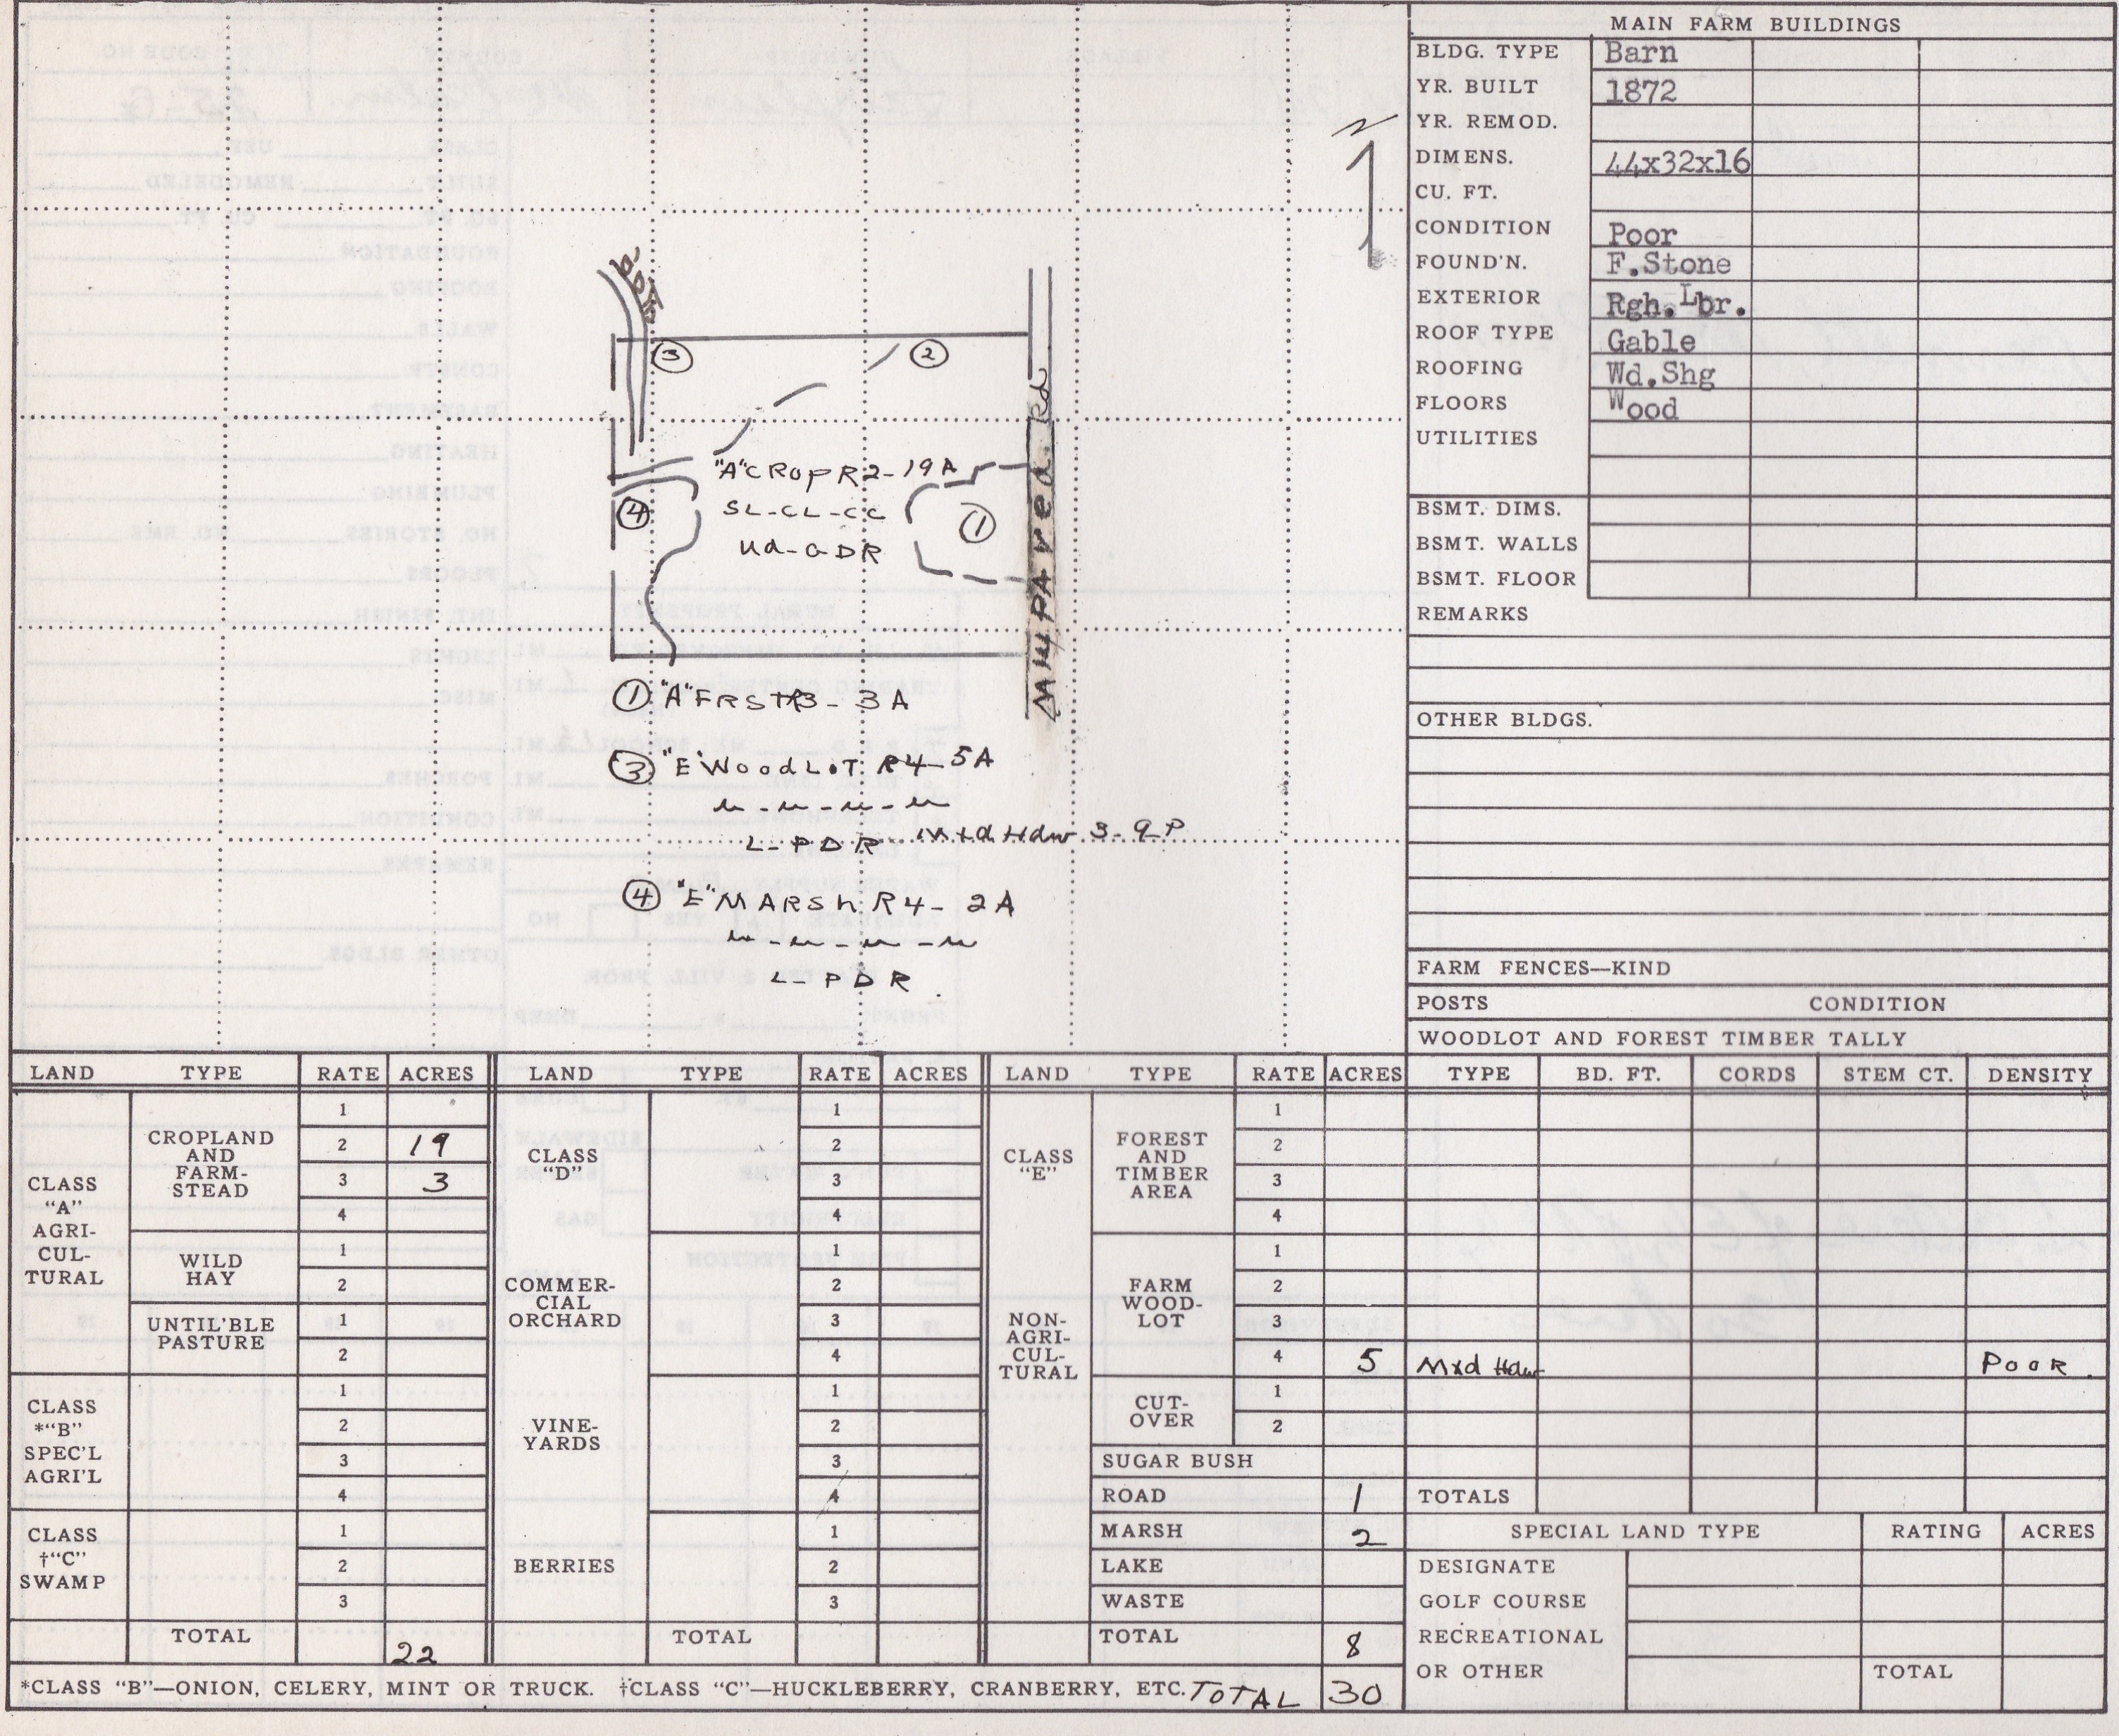 N
③ ②
"A" CROP R2-19A
④ SL-CL-CC ①
Ud-GDR
UNPAVED Rd
① "A" FRST R3- 3A
③ "E" WoodLoT R4-5A
u-u-u-u
L-PDR Mxd Hdw 3-9-P
④ "E" MARSh R4- 2A
u-u-u-u
L-PDR
MAIN FARM BUILDINGS
BLDG. TYPE Barn
YR. BUILT 1872
YR. REMOD.
DIMENS. 44x32x16
CU. FT.
CONDITION Poor
FOUND'N. F.Stone
EXTERIOR Rgh. Lbr.
ROOF TYPE Gable
ROOFING Wd.Shg
FLOORS Wood
UTILITIES
BSMT. DIMS.
BSMT. WALLS
BSMT. FLOOR
REMARKS
OTHER BLDGS.
FARM FENCES—KIND
POSTS CONDITION
WOODLOT AND FOREST TIMBER TALLY
LAND TYPE RATE ACRES LAND TYPE RATE ACRES LAND TYPE RATE ACRES TYPE BD. FT. CORDS STEM CT. DENSITY
CLASS
"A"
AGRI-
CUL-
TURAL
CROPLAND
AND
FARM-
STEAD
1
2 19
3 3
4
WILD
HAY
1
2
UNTIL'BLE
PASTURE
1
2
CLASS
*"B"
SPEC'L
AGRI'L
1
2
3
4
CLASS
†"C"
SWAMP
1
2
3
TOTAL 22
CLASS
"D"
1
2
3
4
COMMER-
CIAL
ORCHARD
1
2
3
4
VINE-
YARDS
1
2
3
4
BERRIES
1
2
3
TOTAL
CLASS
"E"
NON-
AGRI-
CUL-
TURAL
FOREST
AND
TIMBER
AREA
1
2
3
4
FARM
WOOD-
LOT
1
2
3
4 5 Mxd Hdw Poor
CUT-
OVER
1
2
SUGAR BUSH
ROAD 1
MARSH 2
LAKE
WASTE
TOTAL 8
TOTALS
SPECIAL LAND TYPE RATING ACRES
DESIGNATE
GOLF COURSE
RECREATIONAL
OR OTHER TOTAL
*CLASS "B"—ONION, CELERY, MINT OR TRUCK. †CLASS "C"—HUCKLEBERRY, CRANBERRY, ETC. TOTAL 30